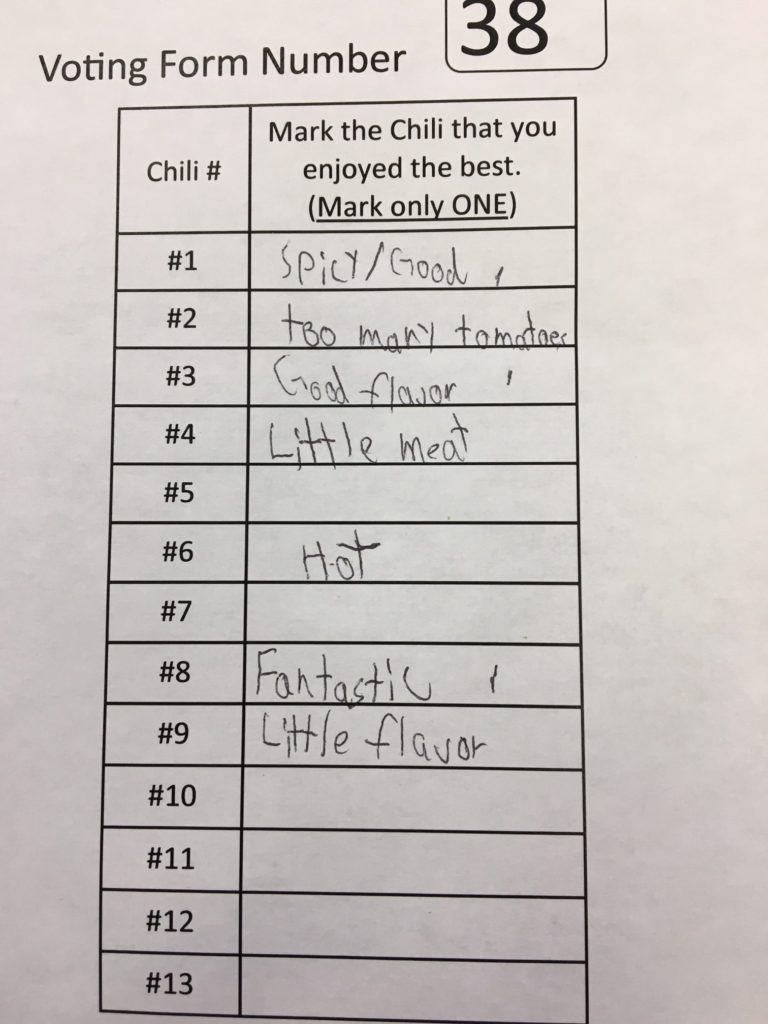 38
Voting Form Number
Chili #
Mark the Chili that you
enjoyed the best.
(Mark only ONE)
#1 Spicy/Good
#2 too many tomatoes
#3 Good flavor
#4 Little meat
#5
#6 Hot
#7
#8 Fantastic
#9 Little flavor
#10
#11
#12
#13